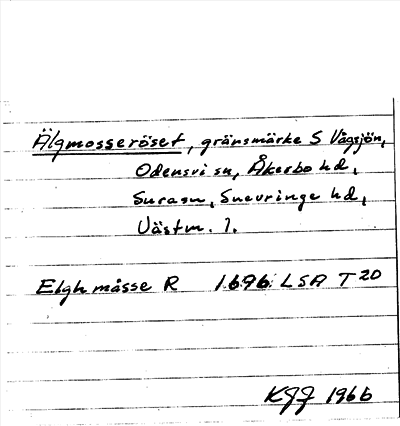 Älgmosseröset, gränsmärke S Vågsjön,
Odensvi sn, Åkerbo hd,
Sura sn, Snevringe hd,
Västm. l.
Elgh måsse R 1696 LSA T 20
KGJ 1966